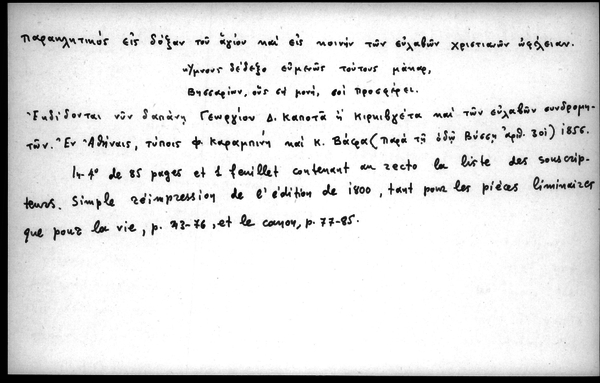 Παρακλητικὸς εἰς δόξαν τοῦ ἁγίου καὶ εἰς κοινὴν τῶν εὐλαβῶν χριστιανῶν ὠφέλειαν.
Ὕμνους δέδεξο εὐμενῶς τούτους μάκαρ,
Βησσαρίων, οὓς ἡ μονή, σοὶ προσφέρει.
Ἐκδίδονται νῦν δαπάνῃ Γεωργίου Δ. Καποτᾶ ἢ Κιρκιβγέτα καὶ τῶν εὐλαβῶν συνδρομη-
τῶν. Ἐν Ἀθήναις, τύποις Φ. Καραμπίνη καὶ Κ. Βάφα (Παρὰ τῇ ὁδῷ Βύσσῃ ἀριθ. 301) 1856.
In-4° de 85 pages et 1 feuillet contenant au recto la liste des souscrip-
teurs. Simple réimpression de l'édition de 1800, tant pour les pièces liminaires
que pour la vie, p. 43-76, et le canon, p. 77-85.